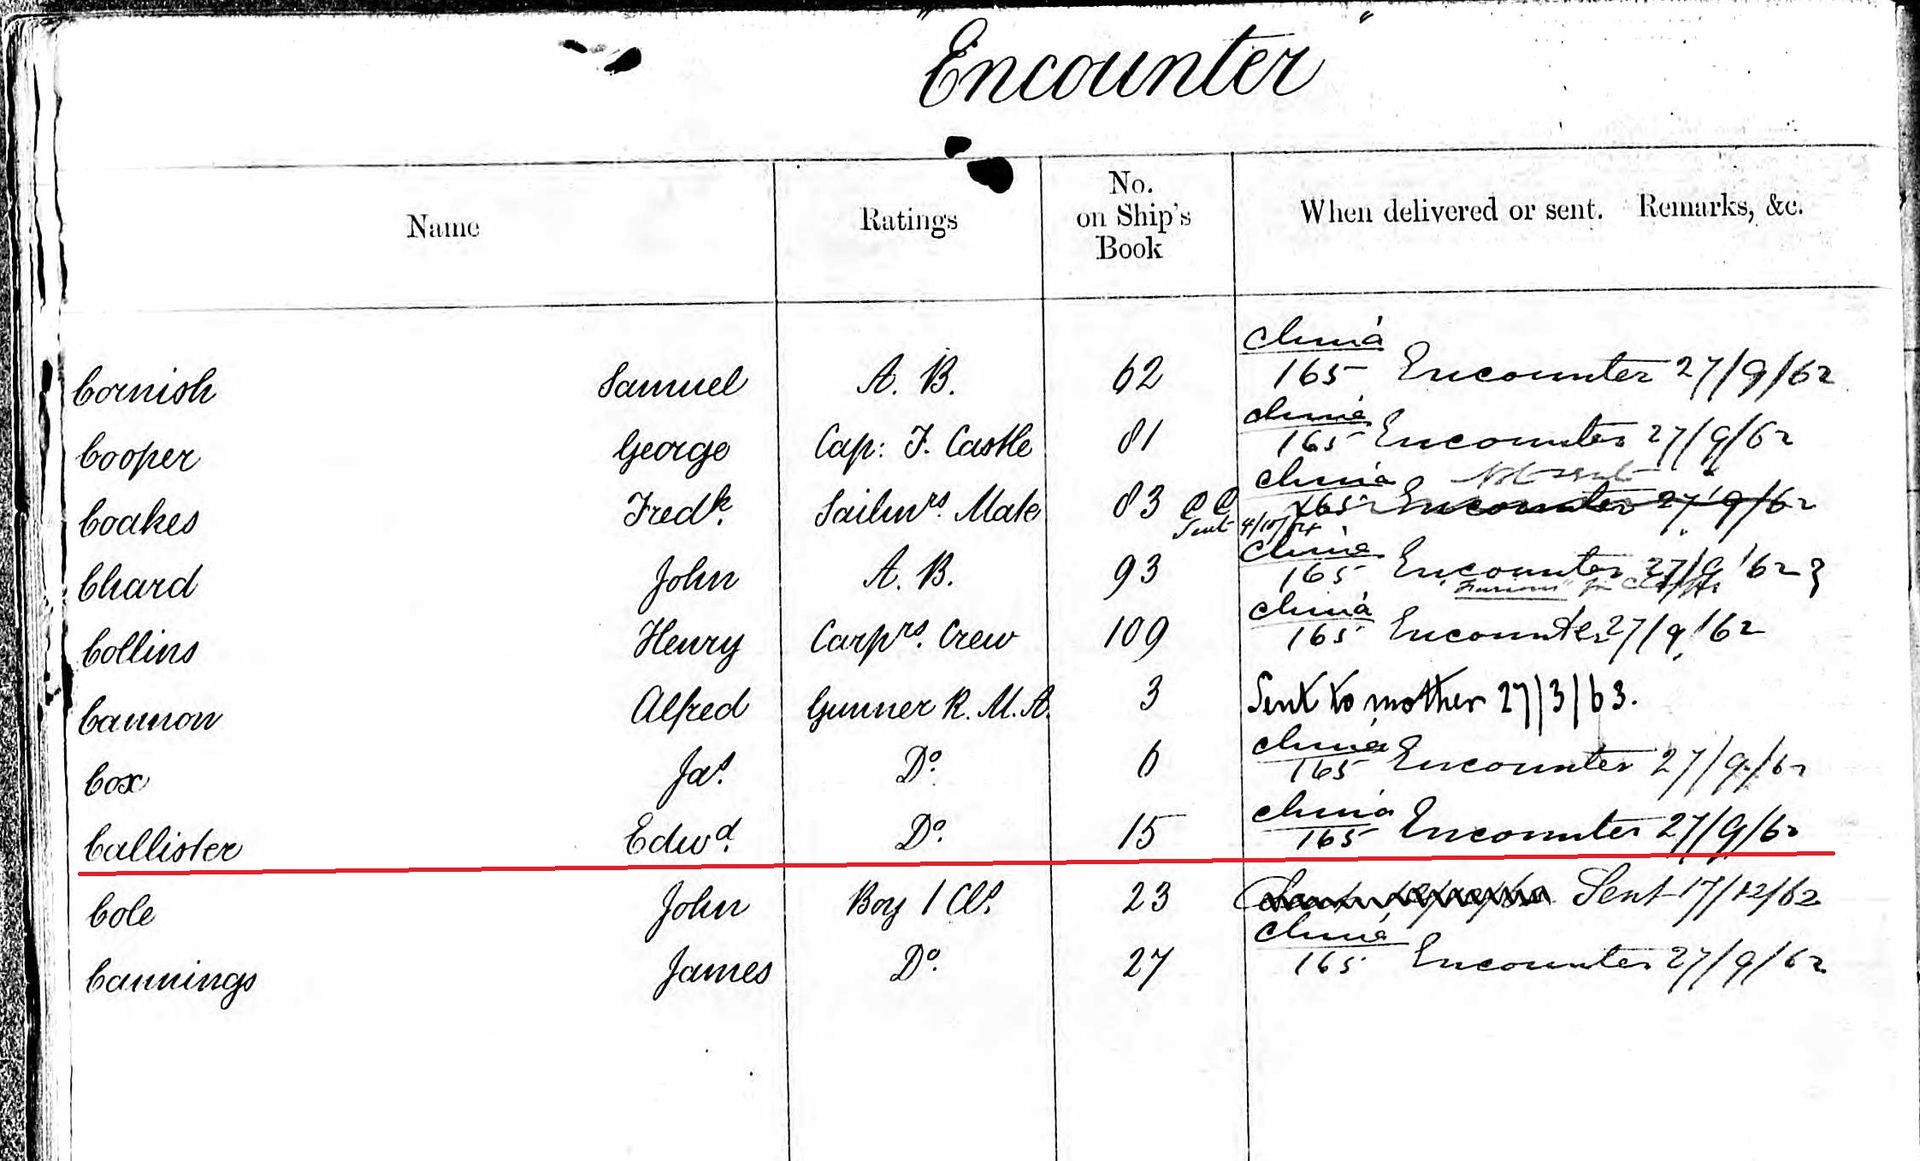 "Encounter"
Name Ratings No. on Ship's Book When delivered or sent. Remarks, &c.
Cornish Samuel A. B. 62 China 165 Encounter 27/9/62
Cooper George Cap: F. Castle 81 China 165 Encounter 27/9/62
Coakes Fredk. Sailmrs. Mate 83 Sent China 165 Encounter 27/9/62 Not sent
Chard John A. B. 93 China 165 Encounter 27/9/62
Collins Henry Carprs. Crew 109 China 165 Encounter 27/9/62
Cannon Alfred Gunner R. M. A. 3 Sent to mother 27/3/63.
Cox Jas. Do. 6 China 165 Encounter 27/9/62
Callister Edwd. Do. 15 China 165 Encounter 27/9/62
Cole John Boy 1 Cls. 23 Sent 17/12/62
Cannings James Do. 27 China 165 Encounter 27/9/62